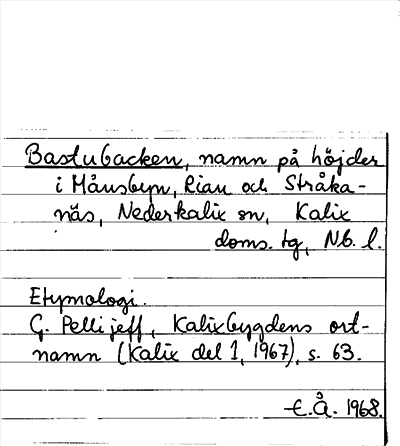 Bastubacken, namn på höjder
i Månsbyn, Rian och Stråka-
näs, Nederkalix sn, Kalix
doms. tg, Nb. l.
Etymologi.
G. Pellijeff, Kalixbygdens ort-
namn (Kalix del 1, 1967), s. 63.
E.Å. 1968.